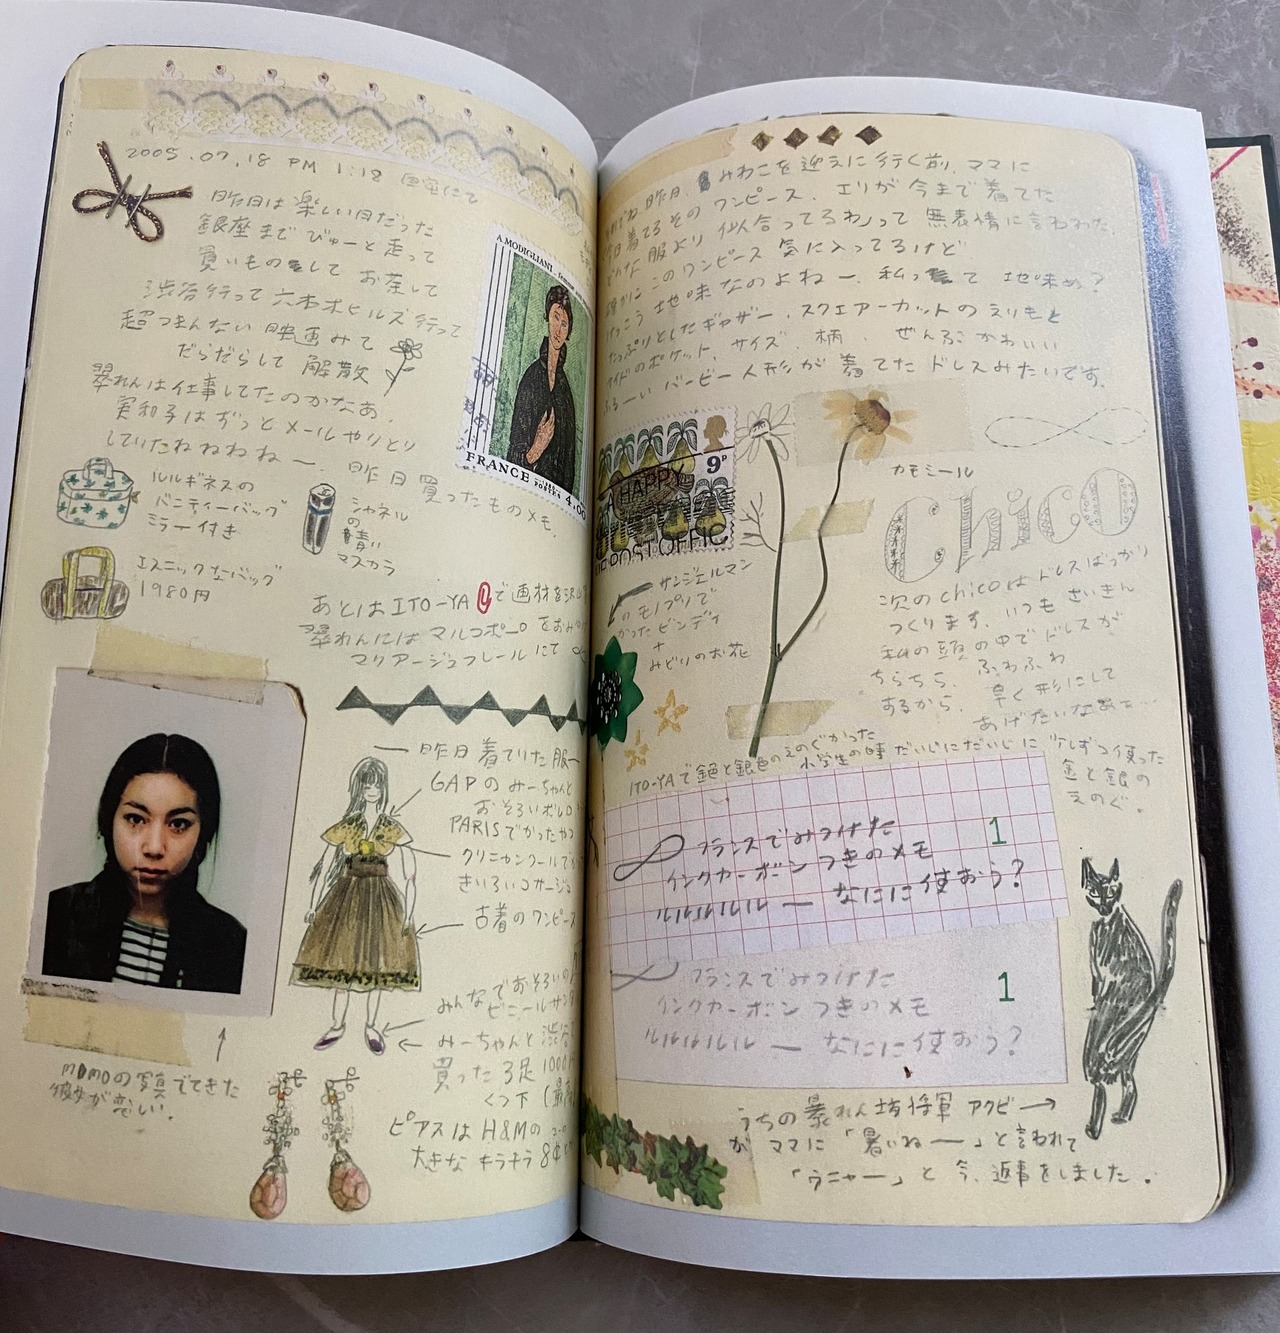 2005.07.18 PM 1:18 自室にて
昨日は楽しい日だった
銀座まで びゅーと走って
買いものして お茶して
渋谷行って 六本木ヒルズ行って
超つまんない 映画みて
だらだらして 解散
翠れんは仕事してたのかなあ.
実和子はずっとメールやりとり
していたねねねねー.
昨日買ったものメモ.
A.MODIGLIANI
FRANCE
4,00
ルルギネスの
バニティーバッグ
ミラー付き
シャネル
の
青い
マスカラ
エスニックなバッグ
1980円
あとは ITO-YA で画材を
翠れんには マルコポーロ を
マリアージュフレール にて
昨日着ていた服
GAPのみーちゃんと
おそろいボレロ
PARISでかったやつ
きいろいコサージュ
古着のワンピース
みんなでおそろいの
みーちゃんと 渋谷
買った 3足 1000
くつ下
ピアスは H&Mの
大きな キラキラ
MOMOの写真でてきた
彼女が恋しい.
昨日、みわこを迎えに行く前、ママに
今日着てるそのワンピース、エリが今まで着てた
どんな服より似合ってるわ」って 無表情に言われた.
このワンピース 気に入ってるけど
地味なのよねー. 私って 地味め?
たっぷりとしたギャザー、スクエアーカットのえりもと
サイドのポケット、サイズ、柄、ぜんぶかわいい
ふるーい バービー人形が 着てた ドレスみたいです.
9P
A HAPPY
POST OFFIC
カモミール
Chico
サンジェルマン
のモノプリで
かったビンディ
+
みどりのお花
次のchicoはドレスばっかり
つくります. いつもさいきん
私の頭の中でドレスが
ちらちら、ふわふわ
するから、早く形にして
あげたいなあ…
ITO-YAで金色と銀色のえのぐかった
小学生の時 だいじにだいじに 少しずつ使った
金と銀の
えのぐ.
フランスでみつけた
インクカーボンつきのメモ
ルルルルルル ー なにに使おう?
1
フランスでみつけた
インクカーボンつきのメモ
ルルルルルル ー なにに使おう?
1
うちの暴れん坊将軍 アクビ→
が ママに 「暑いねー」と言われて
「ウニャー」と 今、返事をしました.